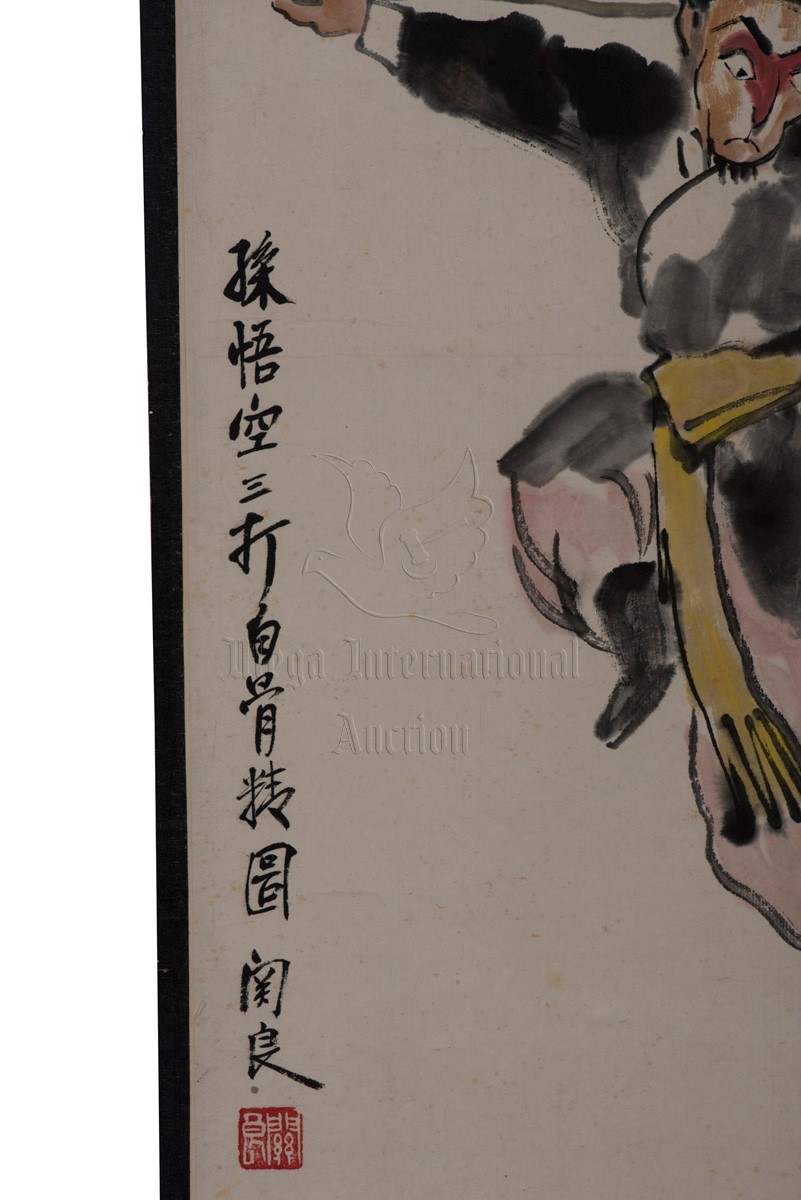 孫悟空三打白骨精圖 関良
關良
Mega International
Auction